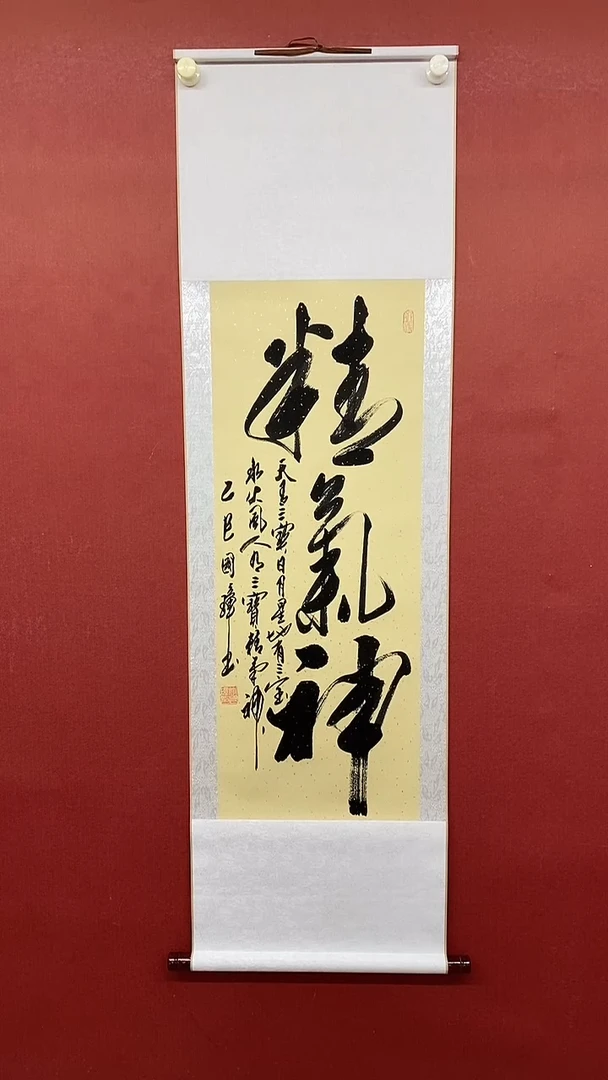 精氣神
天有三寳日月星地有三宝
水火風人有三寳精氣神
乙巳國璋书